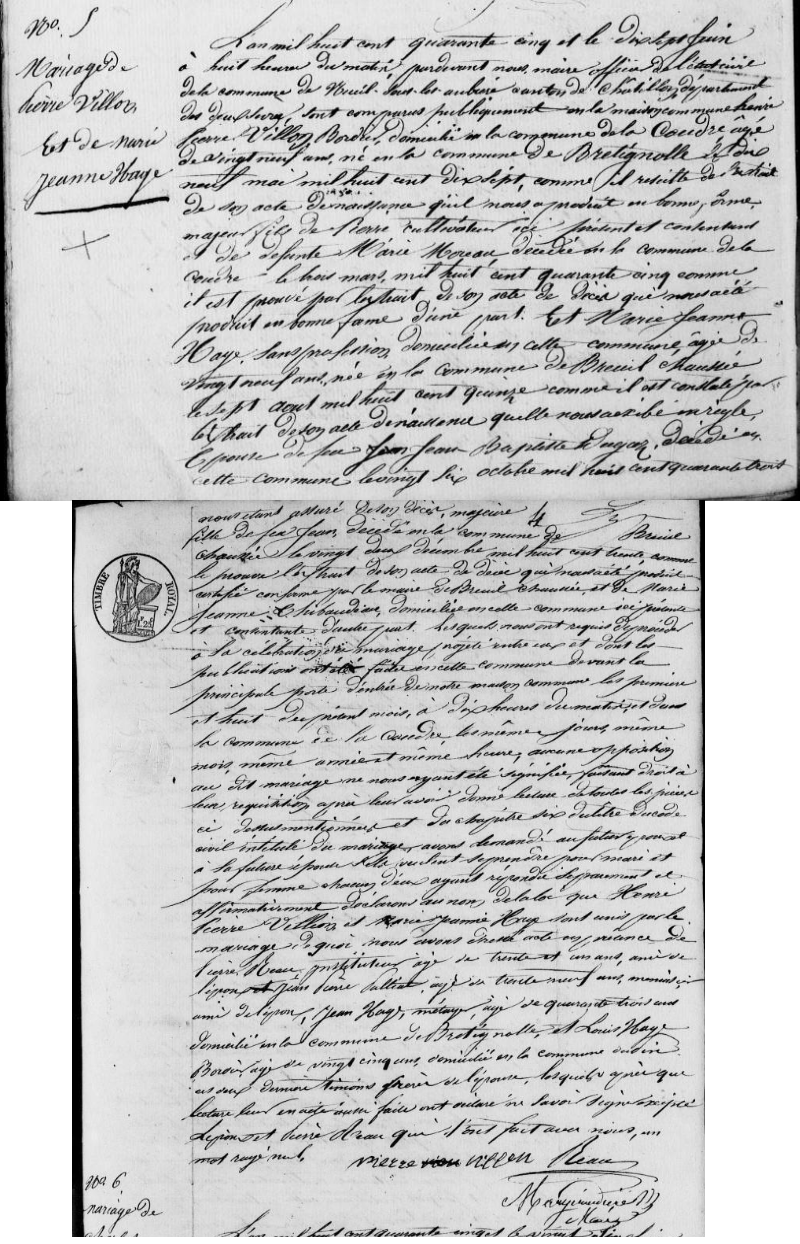 No. 5
Mariage de
Pierre Villon
Et de marie
Jeanne Haye
L'an mil huit cent quarante cinq et le dix sept juin
à huit heures du matin pardevant nous, maire officier de l'état civil
de la commune de Breuil sous les aubiers canton de Chatillon, département
des deux sevres, sont comparus publiquement en la maison commune henri
Pierre Villon Bordier, domicilié en la commune de la Coudre âgé
de vingt neuf ans, né en la commune de Bretignolle le dix
neuf mai mil huit cent dix sept, comme il résulte de l'extrait
de son acte de naissance qu'il nous a produit en bonne forme,
majeur fils de Pierre cultivateur ici présent et consentant
et de defunte Marie Moreau décédée en la commune de la
coudre le trois mars, mil huit cent quarante cinq comme
il est prouvé par l'extrait de son acte de décès qui nous a été
produit en bonne forme d'une part. Et Marie Jeanne
Haye, sans profession, domiciliée en cette commune âgée de
vingt neuf ans, née en la commune de Breuil Chaussée
le sept aout mil huit cent quinze comme il est constaté par
l'extrait de son acte de naissance qu'elle nous a exibé en règle,
Epouse de feu Jean Baptiste décédé en
cette commune le vingt six octobre mil huit cent quarante trois
nous étant assuré de son décès, majeure
fille de feu Jean, décédé en la commune de Breuil
chaussée le vingt deux décembre mil huit cent trente comme
le prouve l'extrait de son acte de décès qui nous a été produit
certifié conforme par le maire de Breuil chaussée, et de Marie
Jeanne Thibaudeau, domiciliée en cette commune ici présente
et consentante d'autre part. Lesquels nous ont requis de procéder
à la célébration de mariage projeté entre eux et dont les
publications ont été faites en cette commune devant la
principale porte d'entrée de notre maison commune les premier
et huit du présent mois, à dix heures du matin, et dans
la commune de la coudre les mêmes jours, même
mois, même année et même heure, aucune opposition
au dit mariage ne nous ayant été signifiée, faisant droit à
leur réquisition, après leur avoir donné lecture de toutes les pièces
ci dessus mentionnées et du chapitre six du titre du code
civil intitulé du mariage, avons demandé au futur époux et
à la future épouse s'ils veulent se prendre pour mari et
pour femme chacun d'eux ayant répondu séparement et
affirmativement déclarons au nom de la loi que Henri
Pierre Villon et Marie Jeanne Haye sont unis par le
mariage de quoi nous avons dressé acte en présence de
Pierre Reau instituteur âgé de trente et un ans, ami de
l'époux et Jean Pierre âgé de trente neuf ans,
ami de l'époux, Jean Haye, métayer, âgé de quarante trois ans
domicilié en la commune de Bretignolle, et Louis Haye
Bordier âgé de vingt cinq ans, domicilié en la commune du pin
ces deux derniers témoins frères de l'épouse, lesquels après que
lecture leur en a été aussi faite ont déclaré ne savoir signer excepté
L'époux et Pierre Reau qui l'ont fait avec nous, un
mot rayé nul.
Pierre Villon Reau
Maire
TIMBRE ROYAL
No 6
mariage de
L'an mil huit cent quarante cinq et le vingt